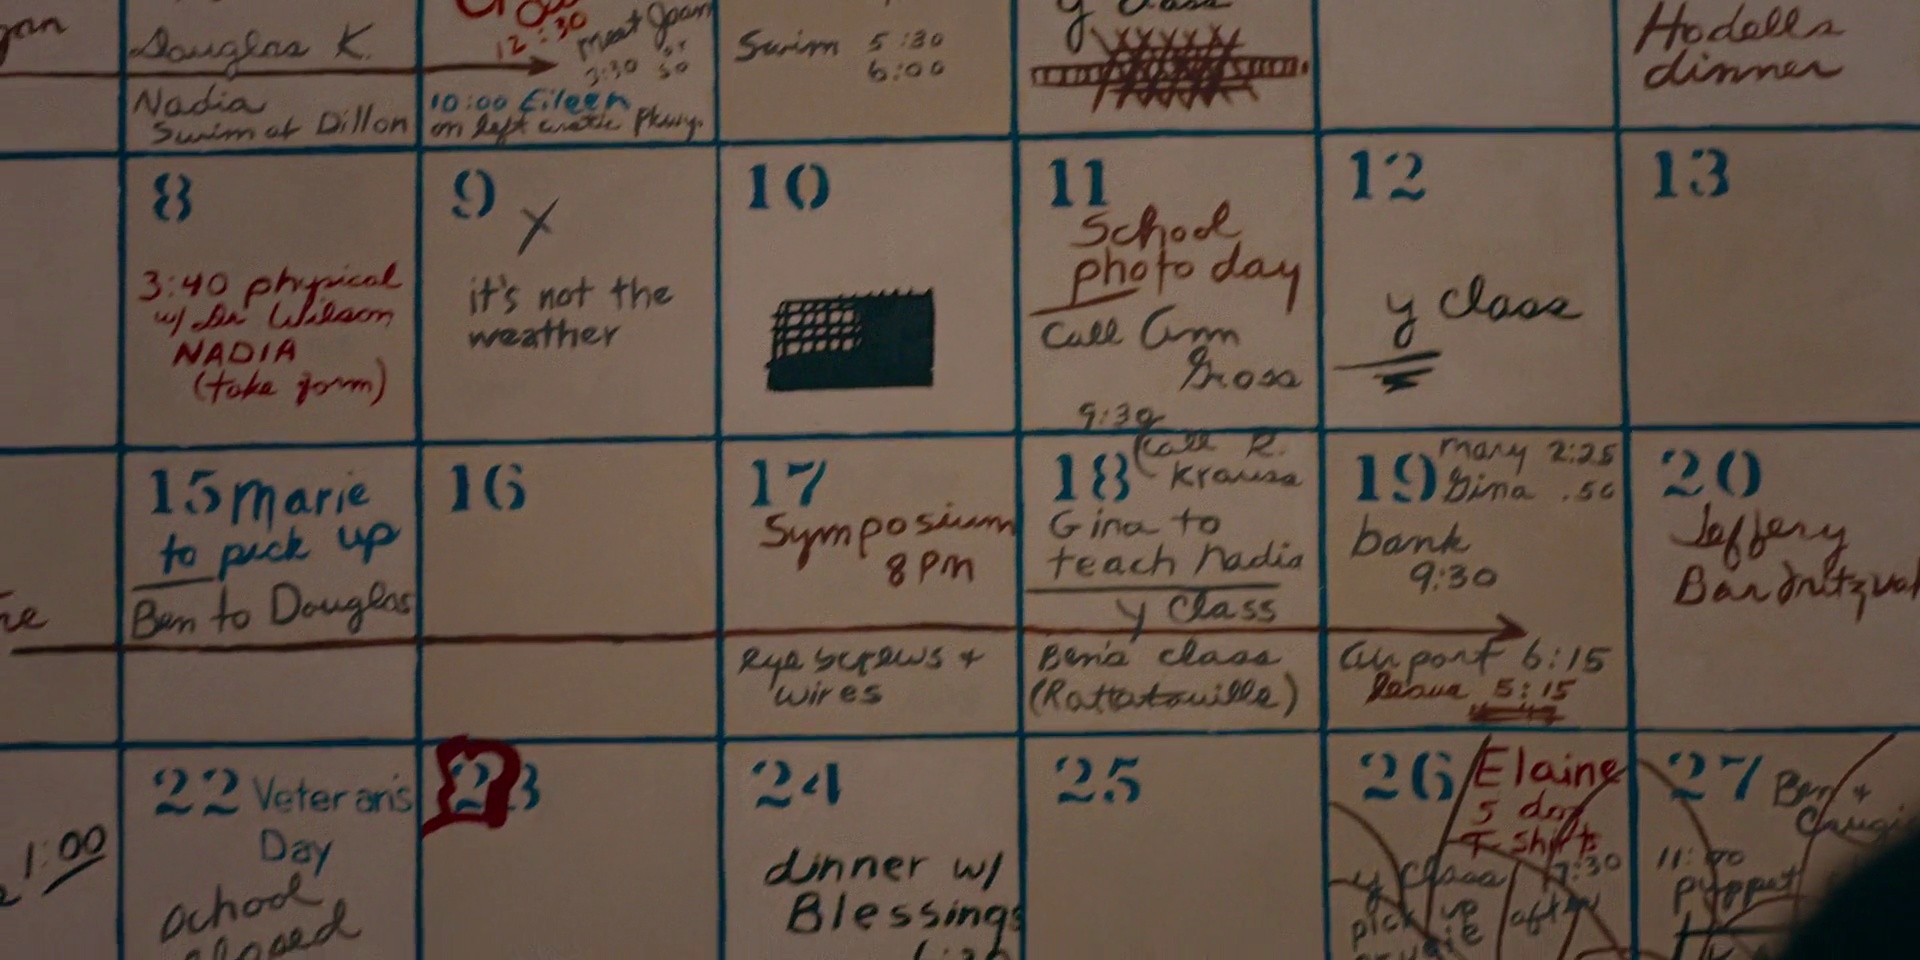 Douglas K.
12:30
meet Joan
3:30 or so
Swim 5:30
6:00
y class
Hodells
dinner
Nadia
Swim at Dillon
10:00 Eileen
on left Pkwy.
8
3:40 physical
w/ Dr Wilson
NADIA
(take form)
9
X
it's not the
weather
10
11
School
photo day
Call Ann
Gross
9:30
12
y class
13
15 Marie
to pick up
Ben to Douglas
16
17
Symposium
8 PM
eye screws +
wires
18 Call R.
Krause
Gina to
teach Nadia
y Class
Ben's class
(Rattatouille)
19 Mary 2:25
Gina .50
bank
9:30
airport 6:15
leave 5:15
20
Jeffery
1:00
22 Veteran's
Day
School
closed
23
24
dinner w/
Blessings
25
26 Elaine
5 doz
T-shirts
y class 7:30
pick up after
27 Ben +
puppet